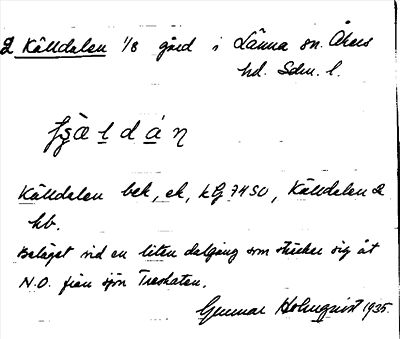 2 Källdalen 1/8 gård i Länna sn. Åkers
hd. Sdm. l.
Källdalen bek, ek, kG 74SO, Källdalen 2
hb.
Beläget vid en liten dalgång som sträcker sig åt
N.O. från sjön Treshaten.
Gunnar Holmqvist 1935.